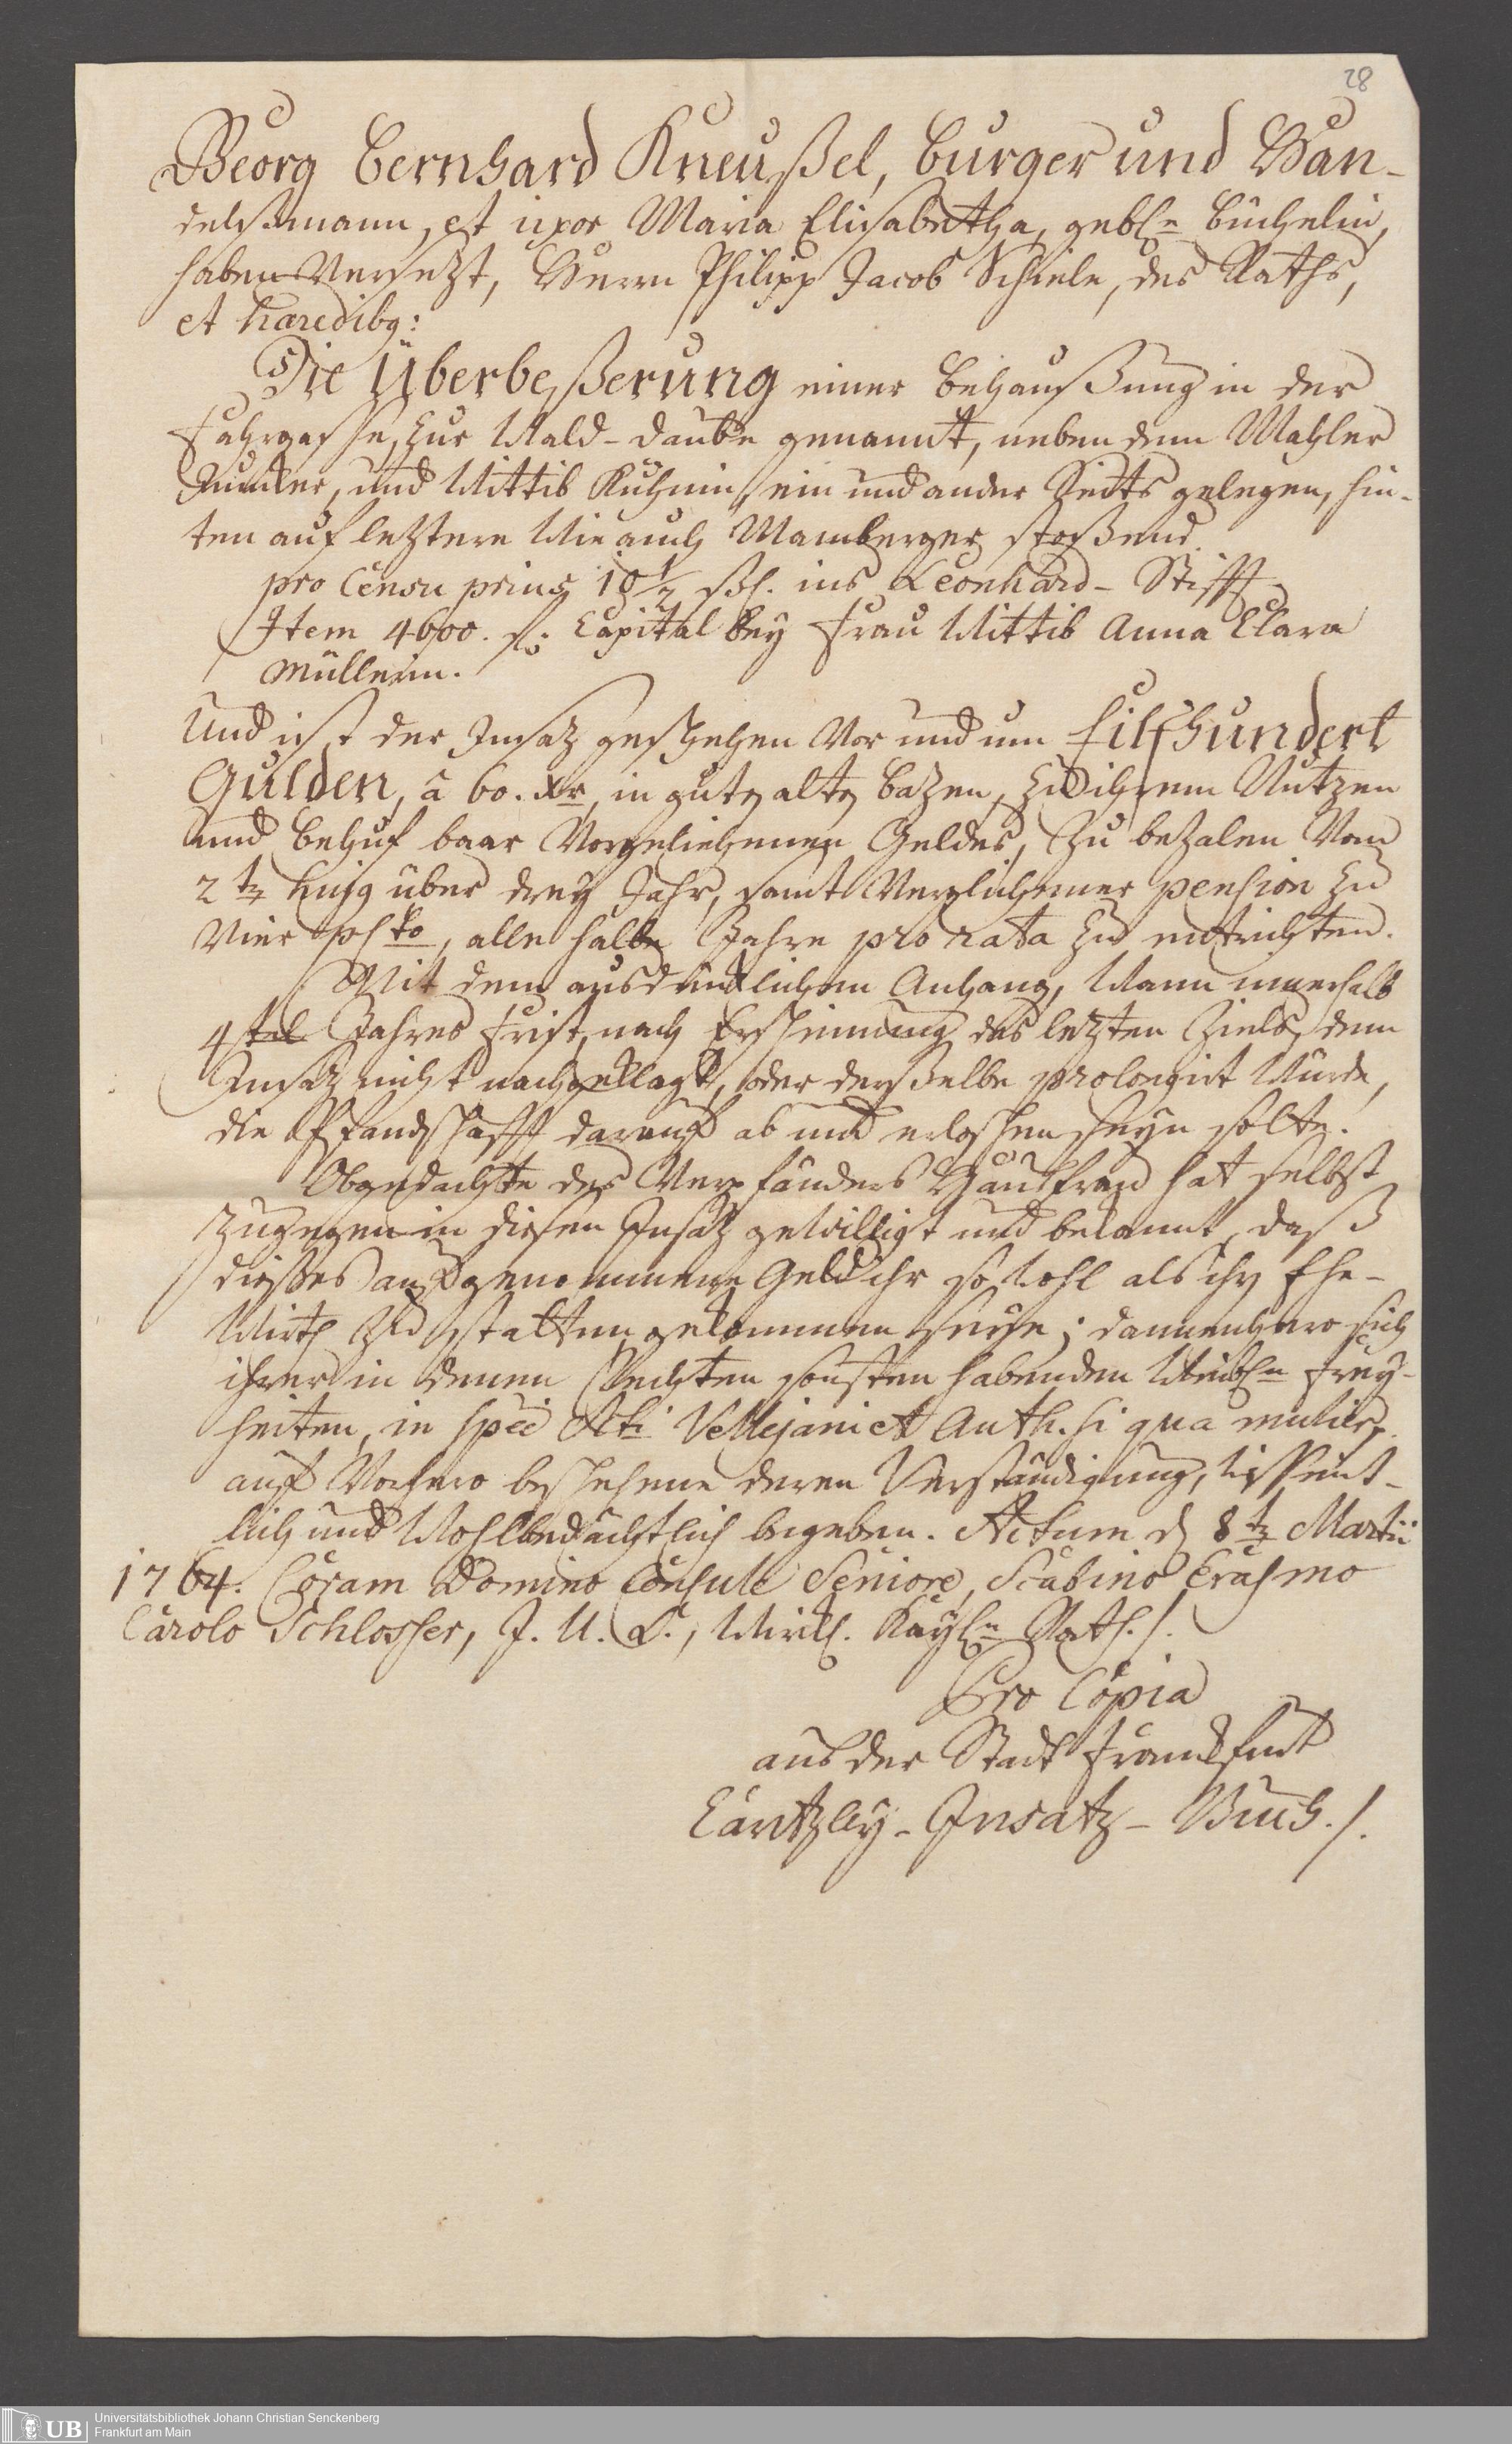 28
Georg Bernhard Kneußel, burger und Han-
delßmann, et uxor Maria Elisabetha, gebl.n Büchelin,
haben Versezt, Herrn Philipp Jacob Schiele, des Raths,
et haeredibg:
Die Überbeßerung einer behaußung in der
Fahrgasse, zur Wald-daube genannt, neben dem Mahler
Juncker, und Wittib Kuhnin, ein und ander Seits gelegen, hin-
ten auf leztere Wie auch Mamberger stoßend.
pro Censu prius 18½ ßl. ins Leonhard-Stifft
Item 4600. fl. Capital bey Frau Wittib Anna Clara
Müllerin.
Und ist der Insaz geschehen Vor und um Eilfhundert
Gulden, â 60. xr, in guten alten bazen, zu ihrem Nutzen
und behuf baar Vorgeliehenen Geldes, zu bezalen Vom
2tn hujg über drey Jahr, samt Verglichener pension zu
Vier pCto, alle halbe Jahre pro rata zu entrichten.
Mit dem ausdrücklichem Anhang, Wann innerhalb
4tel Jahres frist, nach Erscheinung des lezten Ziels, dem
Insaz nicht nachgeklagt, oder derselbe prolongirt Würde,
die Pfandschafft darauf ab und erloschen seyn solte.
Obgedachte des Verpfänders Haußfrau hat selbst
zugegen in diesen Insaz gewilligt und bekannt, daß
dießes aufgenommene Geld ihr so Wohl als ihr Ehe-
Wirth zu statten gekommen seye; dannenhero sich
ihrer in denen Rechten sonsten habenden Weibl.n Frey-
heiten, in spec Scti Vellejani et Auth. si qua mulier,
auf Vorhero beschehene deren Verständigung, Wissent-
lich und Wohlbedächtlich begeben. Actum d 8tn Martii
1764. Coram Domino Consule Seniore, Scabino Erasmo
Carolo Schlosser, J. U. L., Würckl. Kayl.n Rath. /.
Pro Copia
aus der Stadt Franckfurt
Cantzley-Insatz-Buch. /.
UB
Universitätsbibliothek Johann Christian Senckenberg
Frankfurt am Main